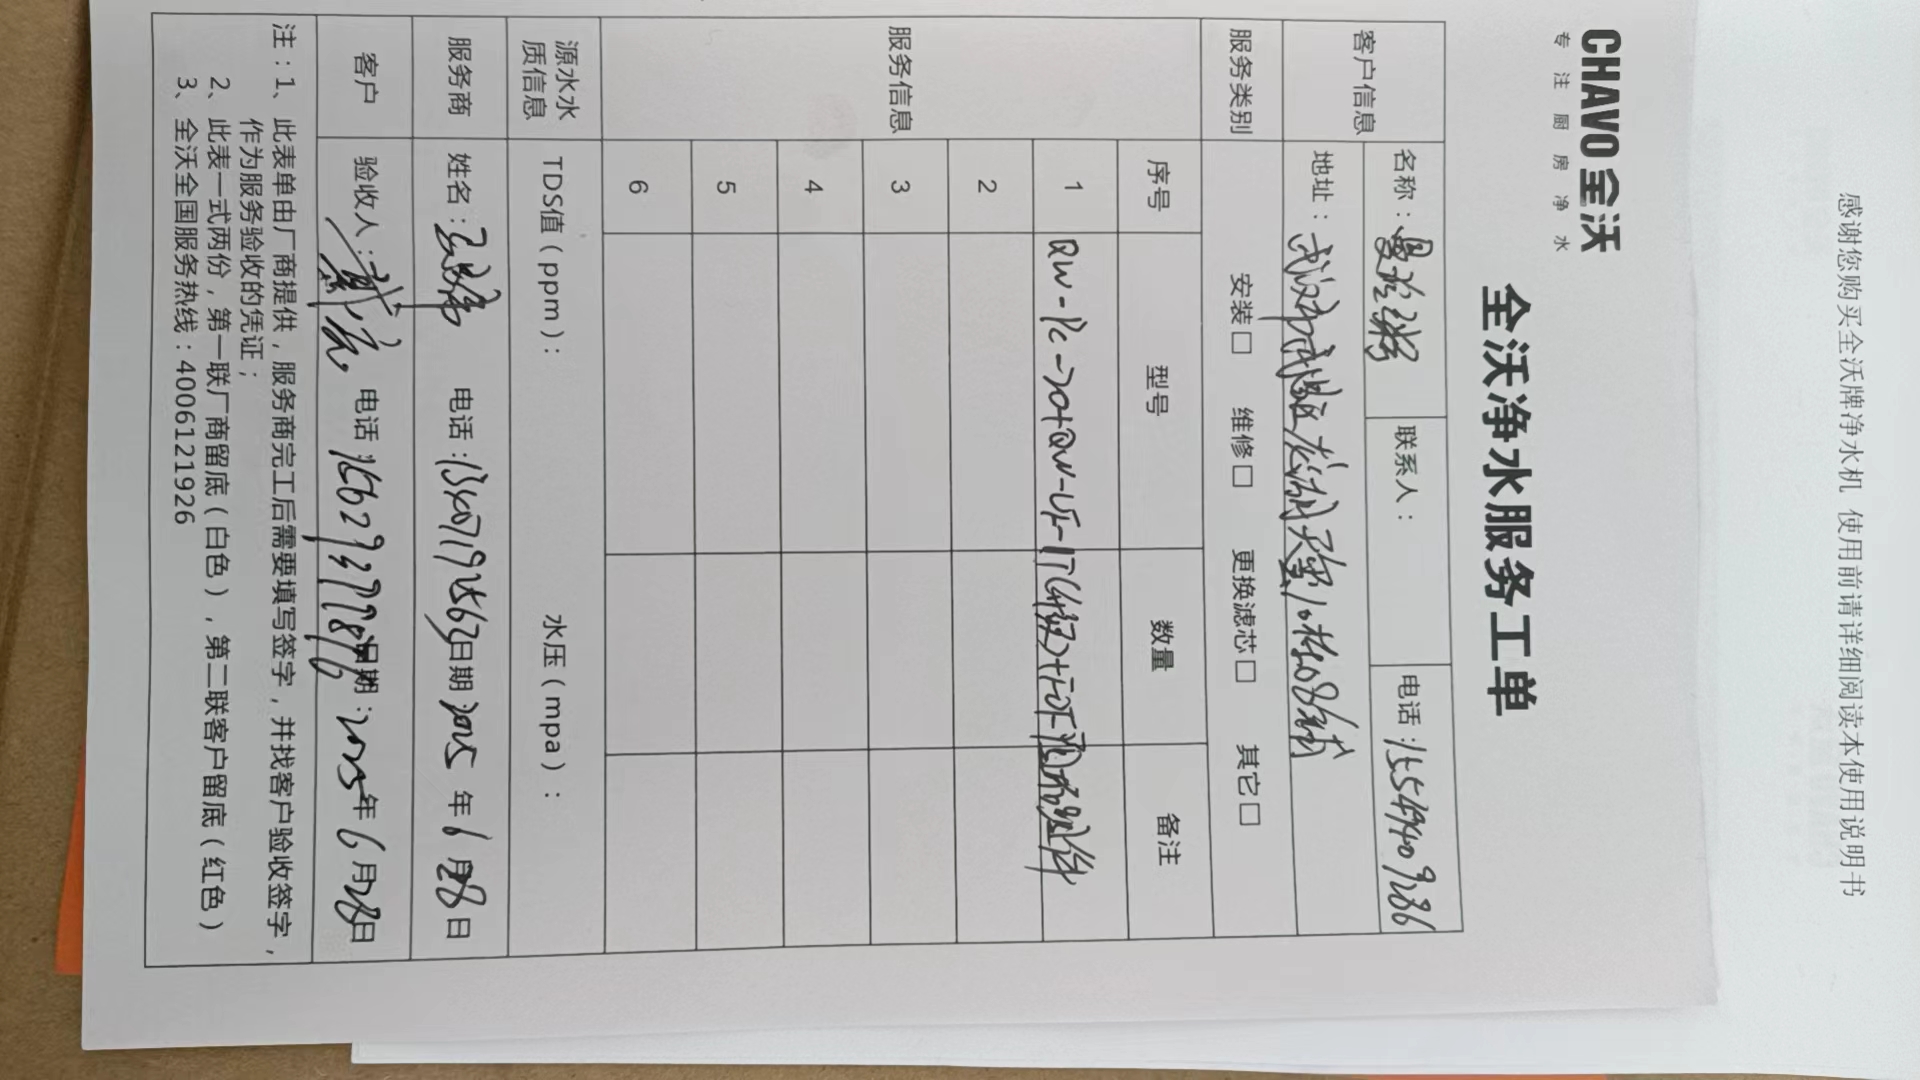 感谢您购买全沃牌净水机 使用前请详细阅读本使用说明书
CHAVO 全沃
专注厨房净水
全沃净水服务工单
客户信息 名称: 联系人: 电话:15549409286
地址:武汉市武昌区 10栋
服务类别 安装□ 维修□ 更换滤芯□ 其它□
服务信息 序号 型号 数量 备注
1 QW-PC-20+QW-UF-1T(4级)+
2
3
4
5
6
源水水质信息 TDS值(ppm): 水压(mpa):
服务商 姓名: 电话: 日期:2025年6月28日
客户 验收人: 电话: 日期:2025年6月28日
注:1、此表单由厂商提供,服务商完工后需要填写签字,并找客户验收签字,
作为服务验收的凭证;
2、此表一式两份,第一联厂商留底(白色),第二联客户留底(红色)
3、全沃全国服务热线:4006121926